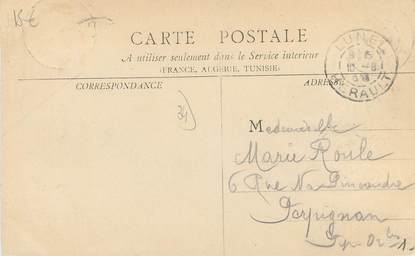 15€
CARTE POSTALE
A utiliser seulement dans le Service intérieur
(FRANCE, ALGERIE, TUNISIE)
CORRESPONDANCE
ADRESSE
LUNEL
HERAULT
34
Mademoiselle
Marie Roule
6 Rue Na
Perpignan
Pyr. Or